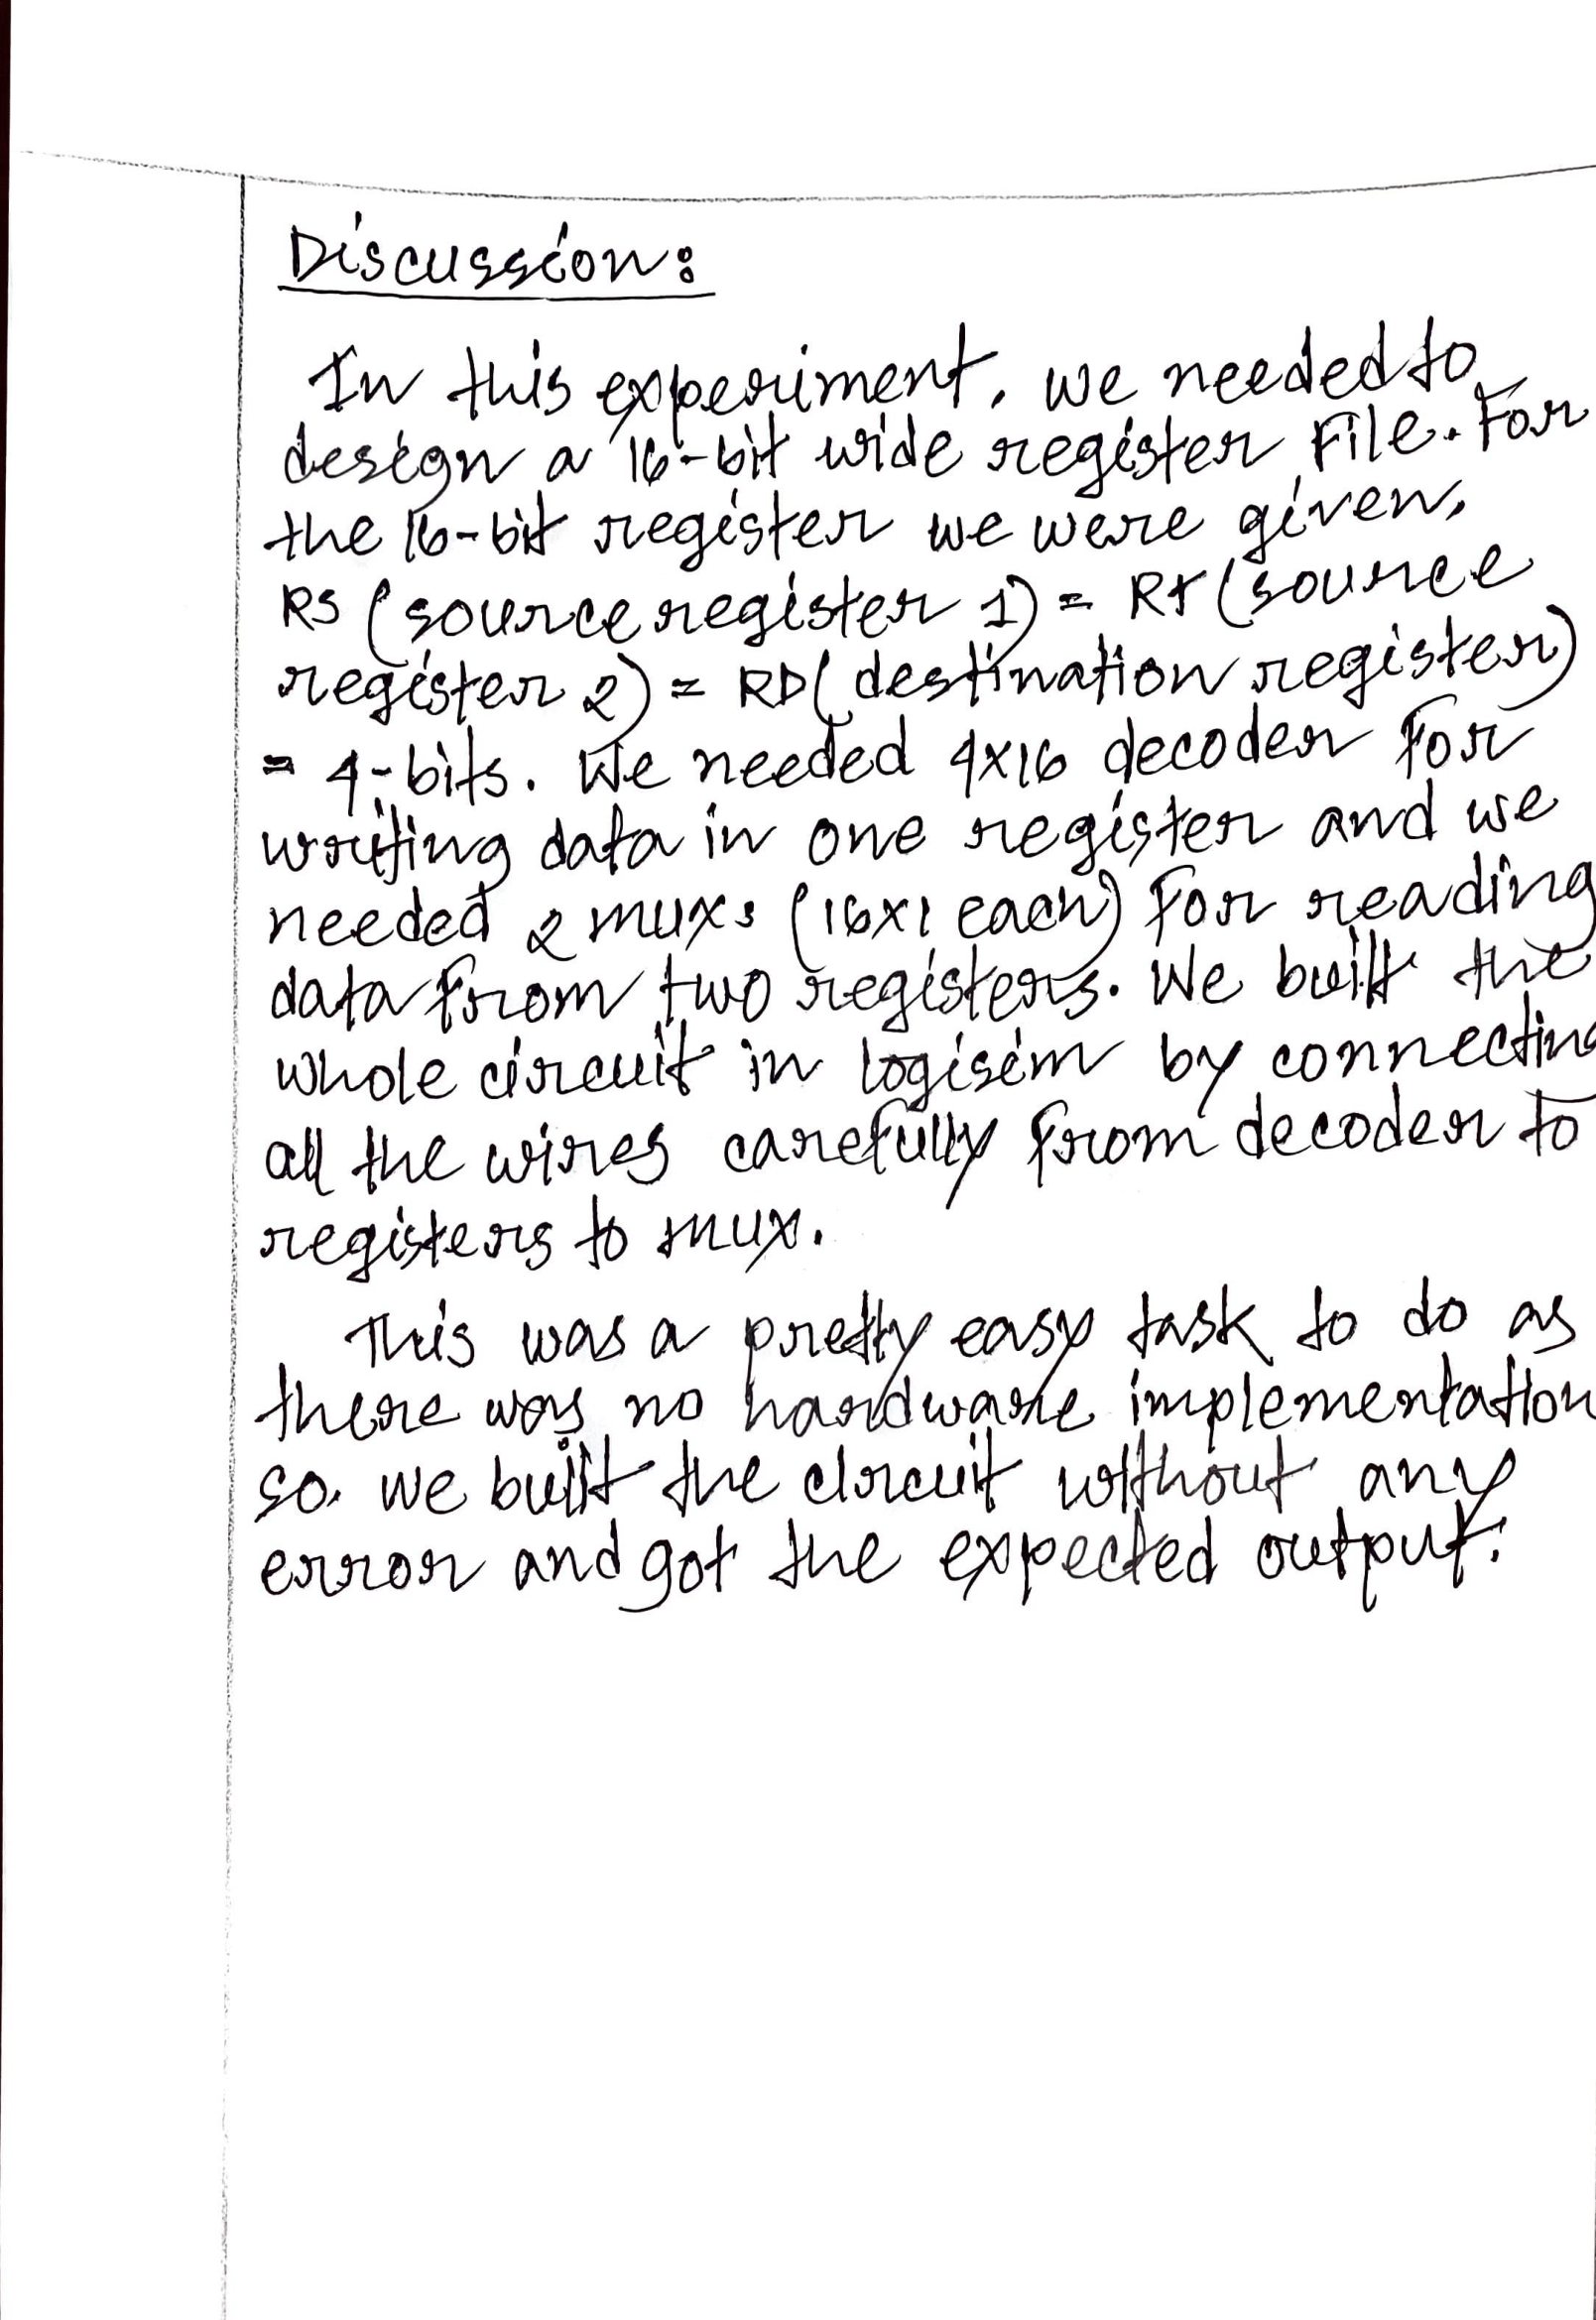 Discussion:
In this experiment, we needed to
design a 16-bit wide register File. For
the 16-bit register we were given,
RS (source register 1) = RT (source
register 2) = RD (destination register)
= 4-bits. We needed 4x16 decoder For
writing data in one register and we
needed 2 muxs (16x1 each) For reading
data From two registers. We built the
whole circuit in logisim by connecting
all the wires carefully From decoder to
registers to mux.
This was a pretty easy task to do as
there was no hardware implementation
so, we built the circuit without any
error and got the expected output.